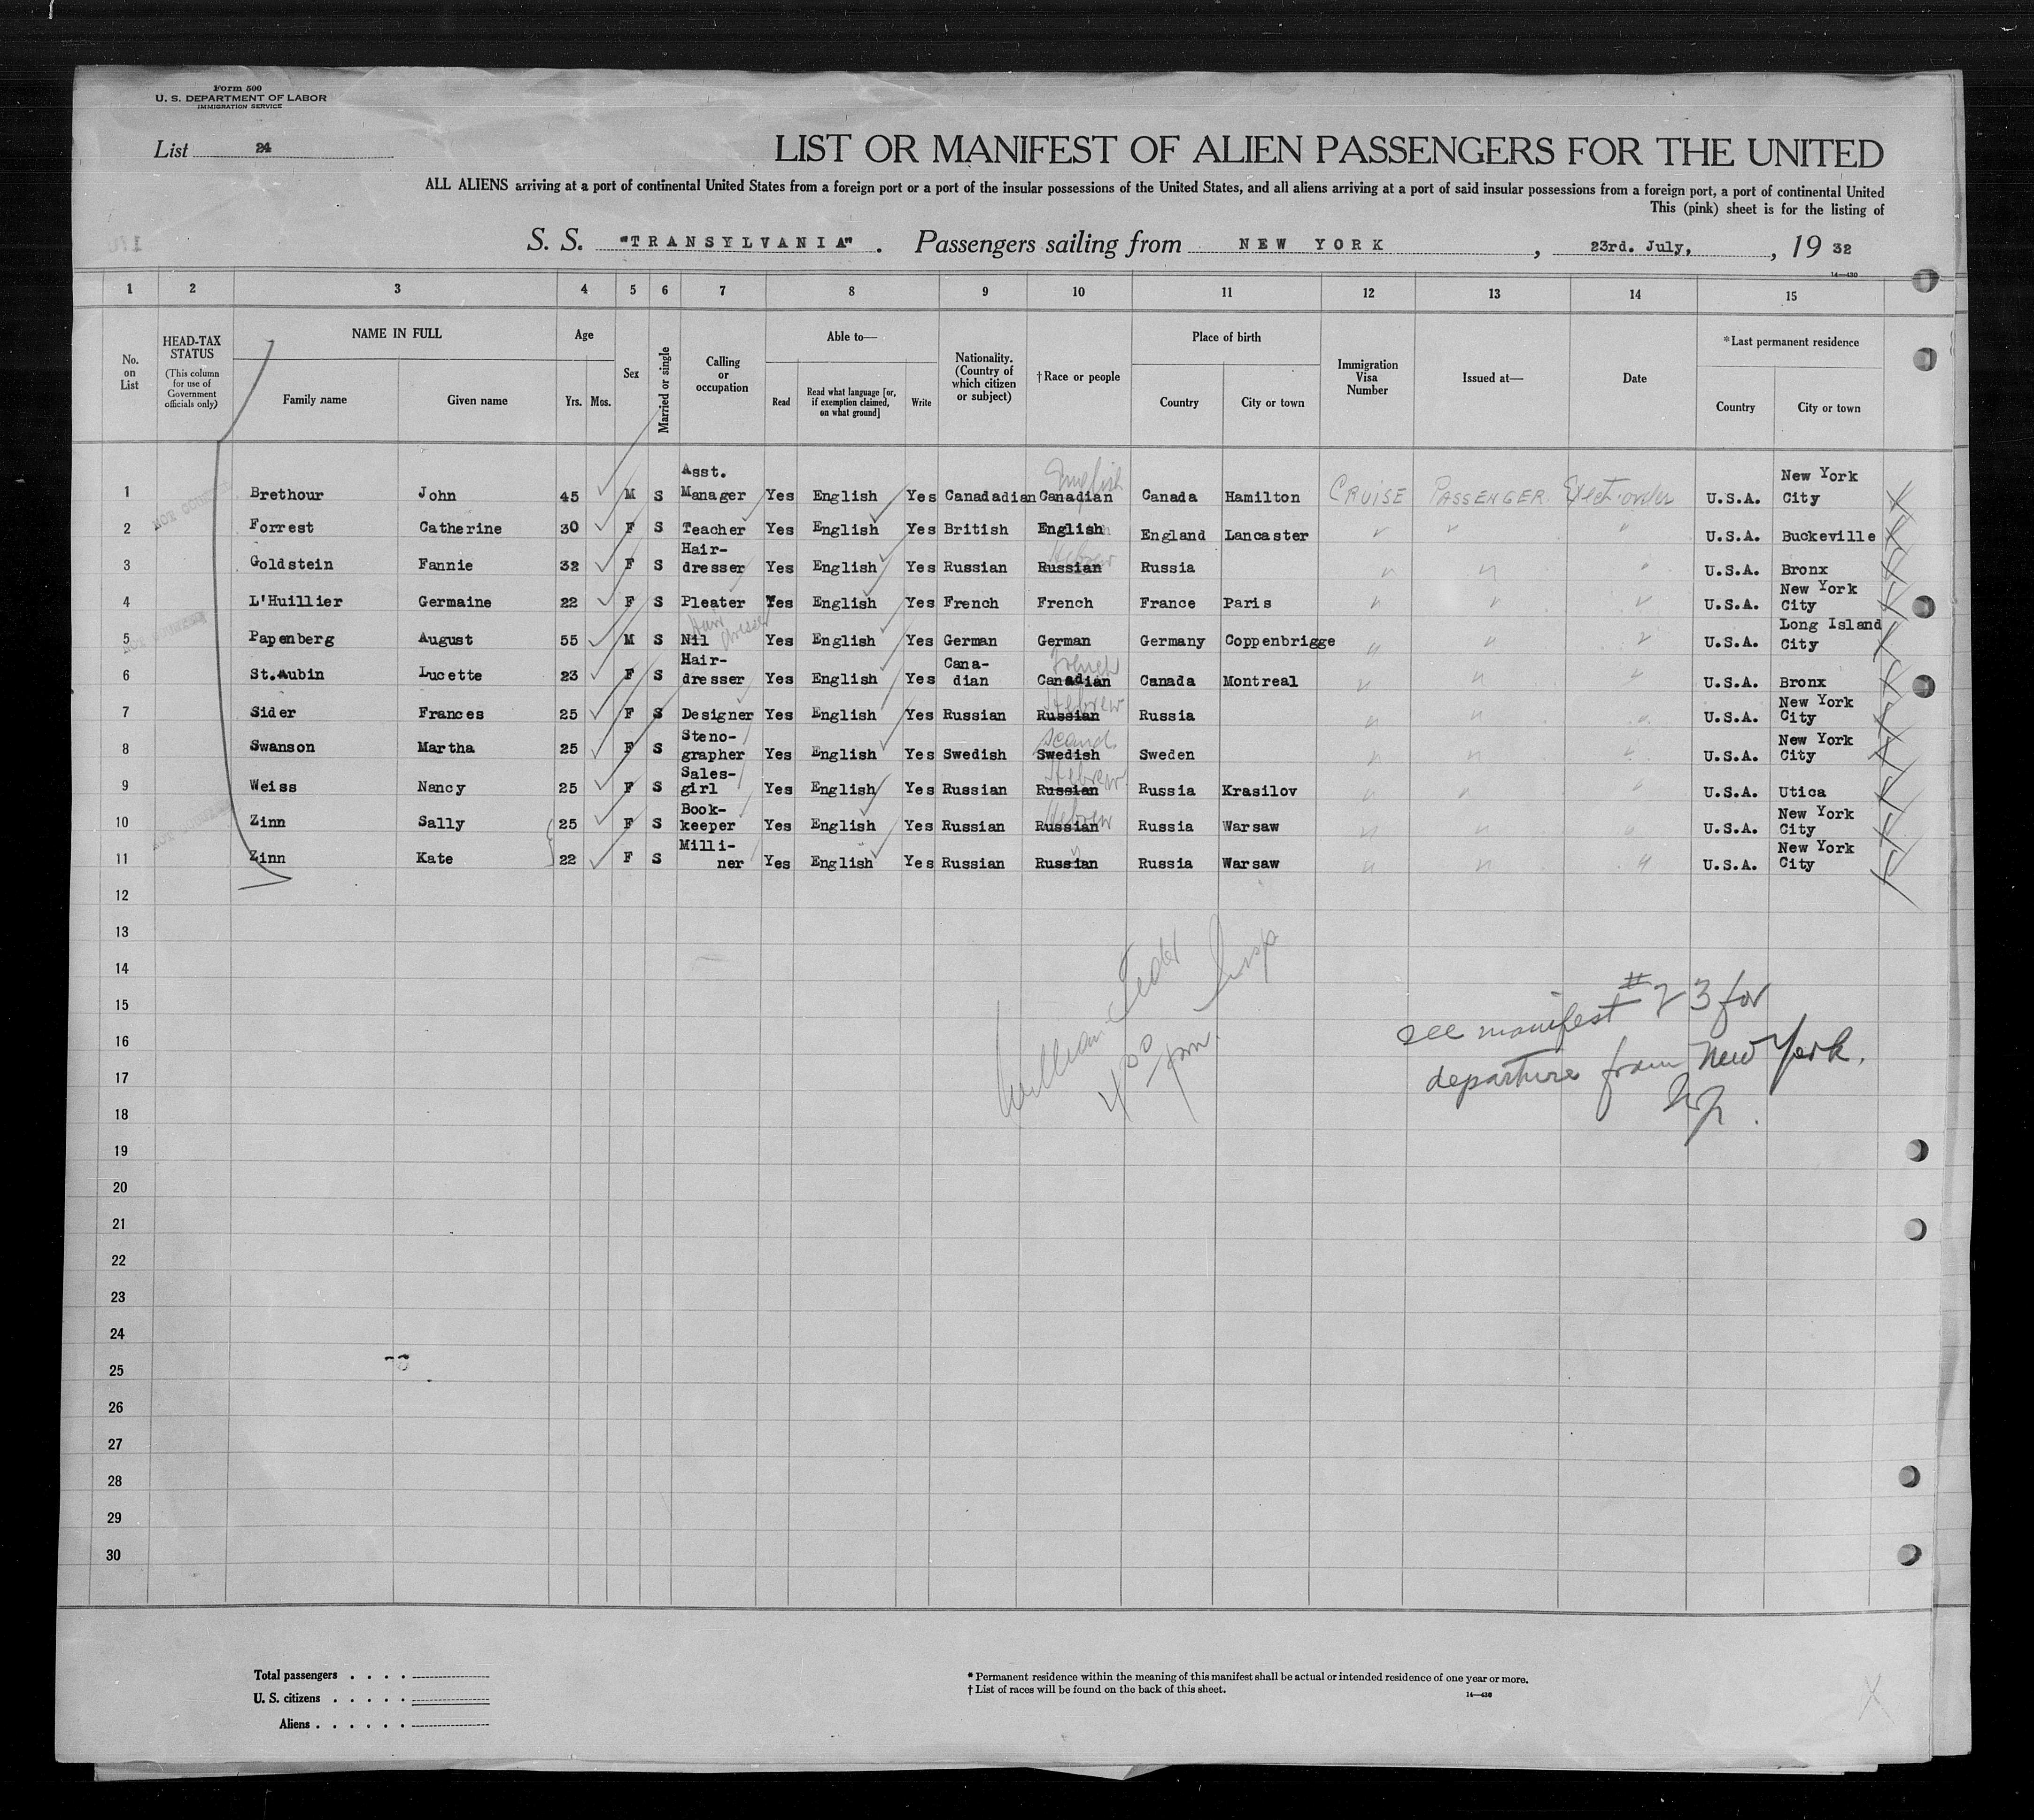 Form 500
U. S. DEPARTMENT OF LABOR
IMMIGRATION SERVICE
List 24
LIST OR MANIFEST OF ALIEN PASSENGERS FOR THE UNITED
ALL ALIENS arriving at a port of continental United States from a foreign port or a port of the insular possessions of the United States, and all aliens arriving at a port of said insular possessions from a foreign port, a port of continental United
This (pink) sheet is for the listing of
S. S. "TRANSYLVANIA". Passengers sailing from NEW YORK, 23rd. July, , 19 32
14—430
1 2 3 4 5 6 7 8 9 10 11 12 13 14 15
No. on List
HEAD-TAX STATUS
(This column for use of Government officials only)
NAME IN FULL
Family name Given name
Age
Yrs. Mos.
Sex
Married or single
Calling or occupation
Able to—
Read
Read what language [or, if exemption claimed, on what ground]
Write
Nationality. (Country of which citizen or subject)
† Race or people
Place of birth
Country City or town
Immigration Visa Number
Issued at—
Date
* Last permanent residence
Country City or town
1 Brethour John 45 M S Asst. Manager Yes English Yes Canadadian Canadian English Canada Hamilton CRUISE PASSENGER Exect. order U.S.A. New York City
2 Forrest Catherine 30 F S Teacher Yes English Yes British English England Lancaster " " " U.S.A. Buckeville
3 Goldstein Fannie 32 F S Hair-dresser Yes English Yes Russian Russian Hebrew Russia " " " U.S.A. Bronx
4 L'Huillier Germaine 22 F S Pleater Yes English Yes French French France Paris " " " U.S.A. New York City
5 Papenberg August 55 M S Nil Hair dresser Yes English Yes German German Germany Coppenbrigge " " " U.S.A. Long Island City
6 St.Aubin Lucette 23 F S Hair-dresser Yes English Yes Cana-dian Canadian French Canada Montreal " " " U.S.A. Bronx
7 Sider Frances 25 F S Designer Yes English Yes Russian Russian Hebrew Russia " " " U.S.A. New York City
8 Swanson Martha 25 F S Steno-grapher Yes English Yes Swedish Swedish Scand. Sweden " " " U.S.A. New York City
9 Weiss Nancy 25 F S Sales-girl Yes English Yes Russian Russian Hebrew Russia Krasilov " " " U.S.A. Utica
10 Zinn Sally 25 F S Book-keeper Yes English Yes Russian Russian Hebrew Russia Warsaw " " " U.S.A. New York City
11 Zinn Kate 22 F S Milli-ner Yes English Yes Russian Russian " Russia Warsaw " " " U.S.A. New York City
12
13
14
15
16
17
18
19
20
21
22
23
24
25
26
27
28
29
30
William Insp
4 00 pm.
see manifest #23 for
departure from New York.
Total passengers . . . .
U. S. citizens . . . . .
Aliens . . . . . .
* Permanent residence within the meaning of this manifest shall be actual or intended residence of one year or more.
† List of races will be found on the back of this sheet.
14—430